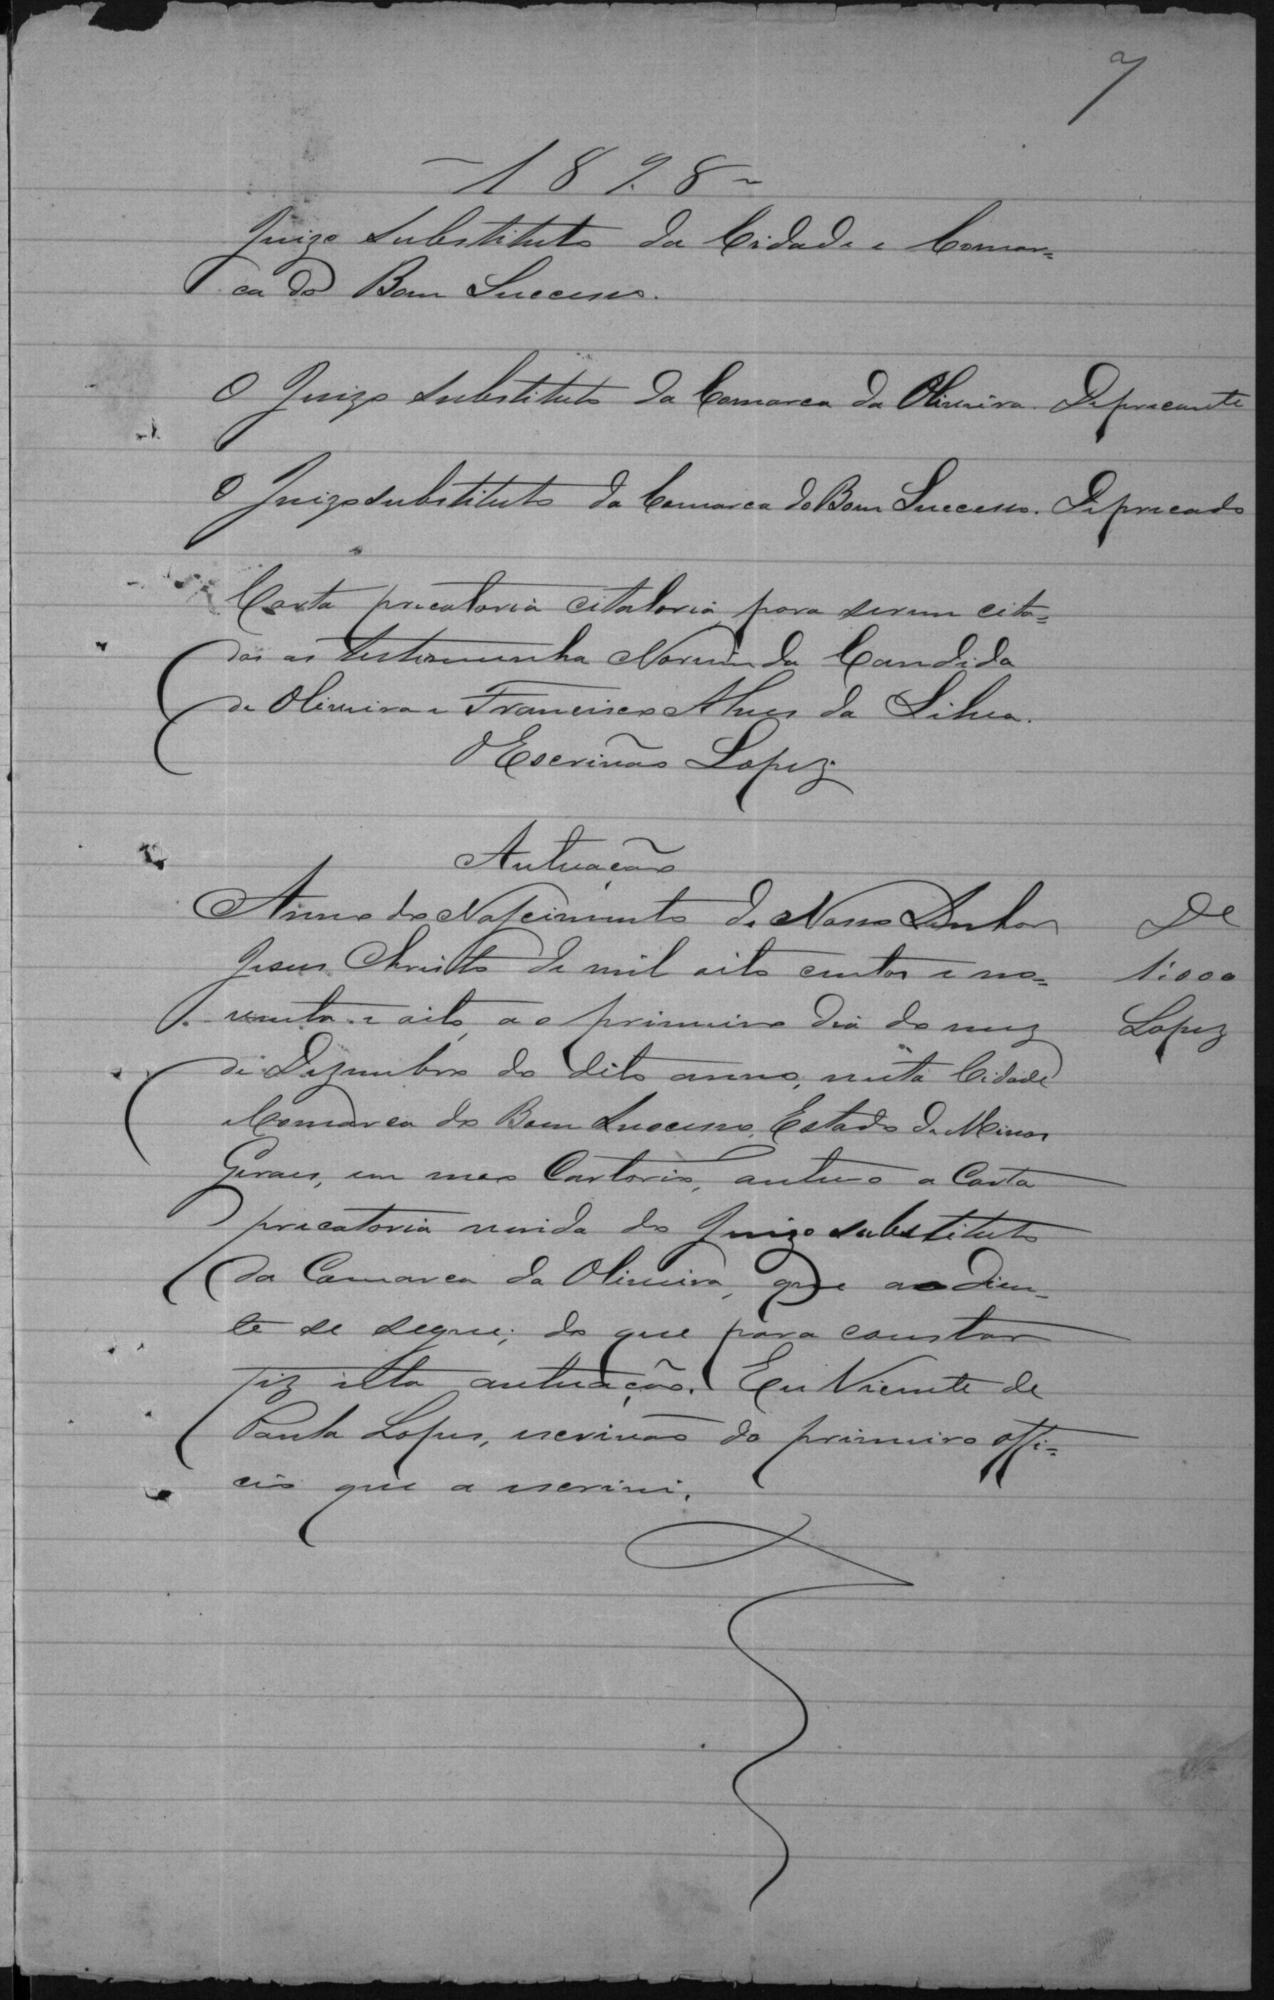 7
-1898-
Juizo substituto da Cidade e Comar=
ca do Bom Successo.
O Juizo substituto da Comarca da Oliveira. Deprecante
O Juizo substituto da Comarca do Bom Successo. Deprecado
Carta precatoria citatoria para serem cita=
das as testemunha Norvinda Candida
de Oliveira e Francisco Alves da Silva.
O Escrivão Lopez
Autuação
Anno do Nascimento de Nosso Senhor
Jesus Christo de mil oito centos e no=
venta e oito, ao primeiro dia do mez
de Dezembro do dito anno, nesta Cidade
e Comarca do Bom Successo, Estado de Minas
Geraes, em meo Cartorio, autuo a Carta
precatoria vinda do Juizo substituto
da Comarca da Oliveira, que ao dian_
te se segue; do que para constar
fiz esta autuação. Eu Vicente de
Paula Lopes, escrivão do primeiro offi=
cio que a escrivi.
De
1:000
Lopez